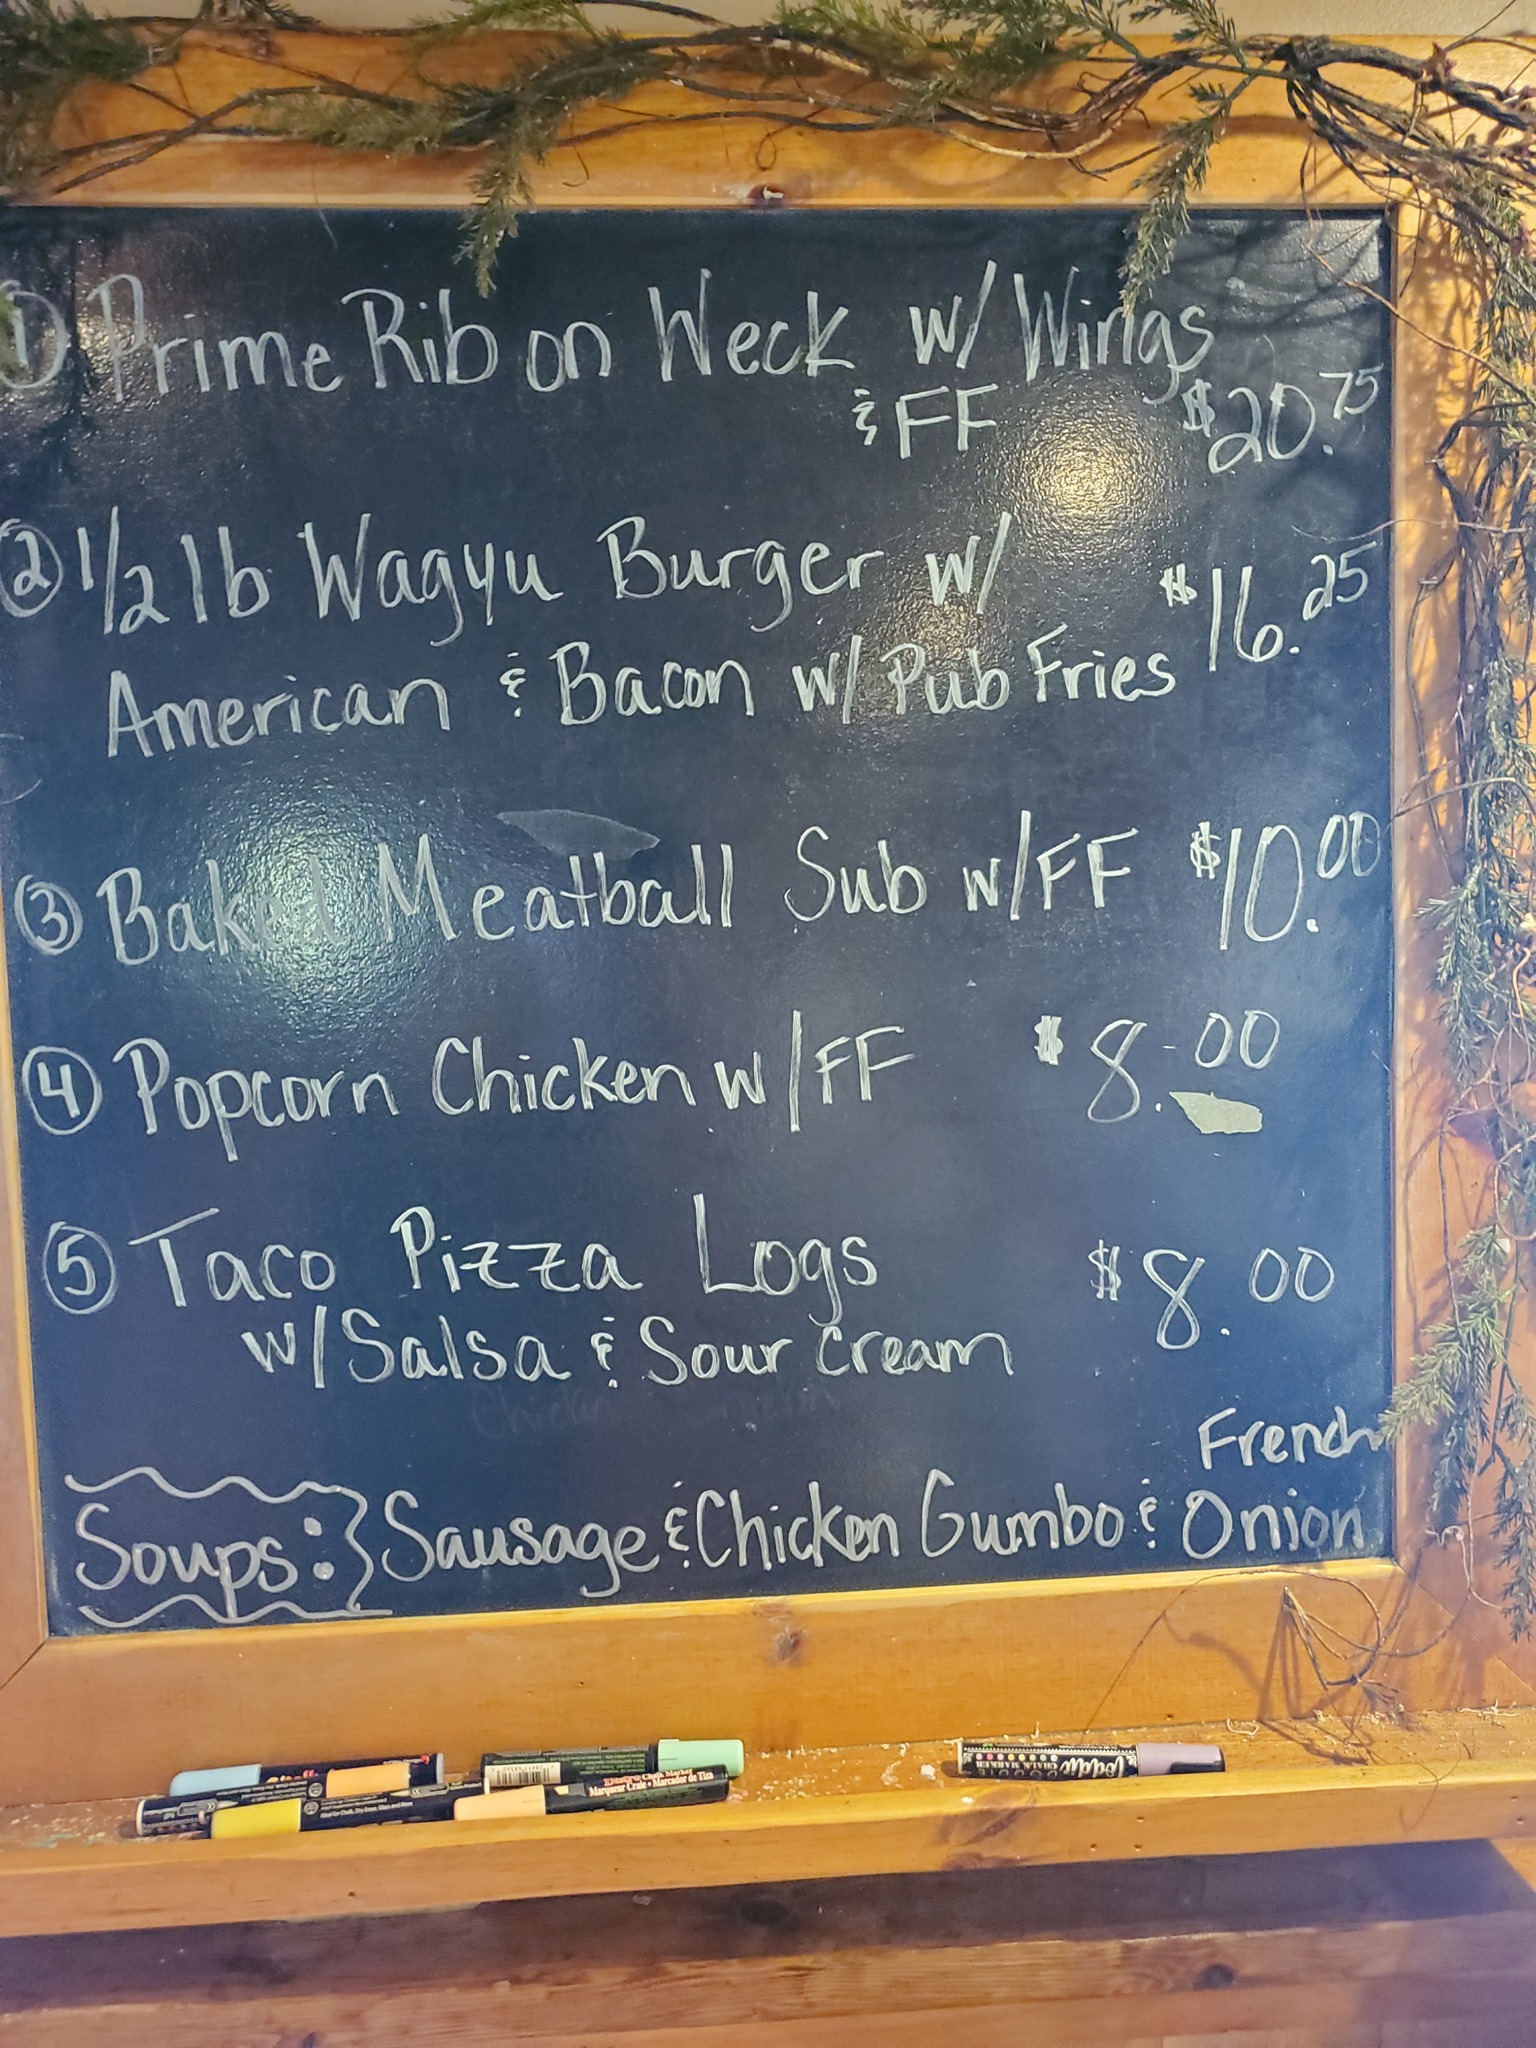 ① Prime Rib on Weck w/ Wings
& FF $20.75
② 1/2 lb Wagyu Burger w/
American & Bacon w/ Pub Fries $16.25
③ Baked Meatball Sub w/FF $10.00
④ Popcorn Chicken w/FF $8.00
⑤ Taco Pizza Logs $8.00
w/Salsa & Sour cream
French
Soups: Sausage & Chicken Gumbo & Onion
Chalk Marker
Marqueur Craie • Marcador de Tiza
CHALK MARKER